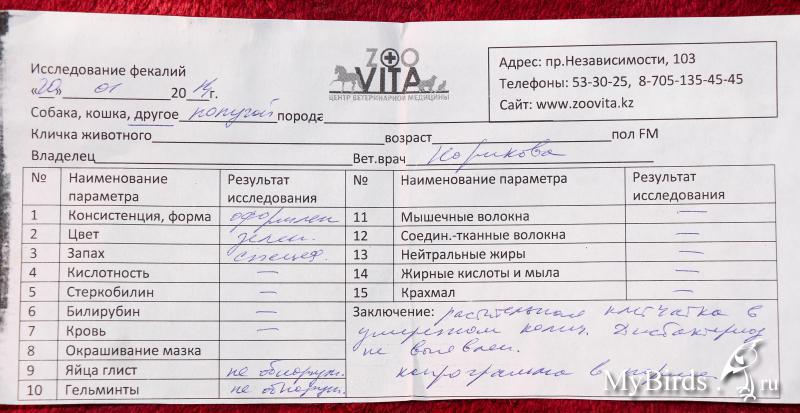 ZOO
VITA
ЦЕНТР ВЕТЕРИНАРНОЙ МЕДИЦИНЫ
Адрес: пр.Независимости, 103
Телефоны: 53-30-25, 8-705-135-45-45
Сайт: www.zoovita.kz
Исследование фекалий
«20» 01 2014г.
Собака, кошка, другое попугай порода
Кличка животного возраст пол FM
Владелец Вет.врач
№ Наименование параметра Результат исследования № Наименование параметра Результат исследования
1 Консистенция, форма оформлен 11 Мышечные волокна —
2 Цвет зелен. 12 Соедин.-тканные волокна —
3 Запах специф. 13 Нейтральные жиры —
4 Кислотность — 14 Жирные кислоты и мыла —
5 Стеркобилин — 15 Крахмал —
6 Билирубин —
7 Кровь —
8 Окрашивание мазка
9 Яйца глист не обнаруж.
10 Гельминты не обнаруж.
Заключение: растительная клетчатка в
умеренном колич. Дисбактериоз
не выявлен.
копрограмма в норме
MyBirds.ru